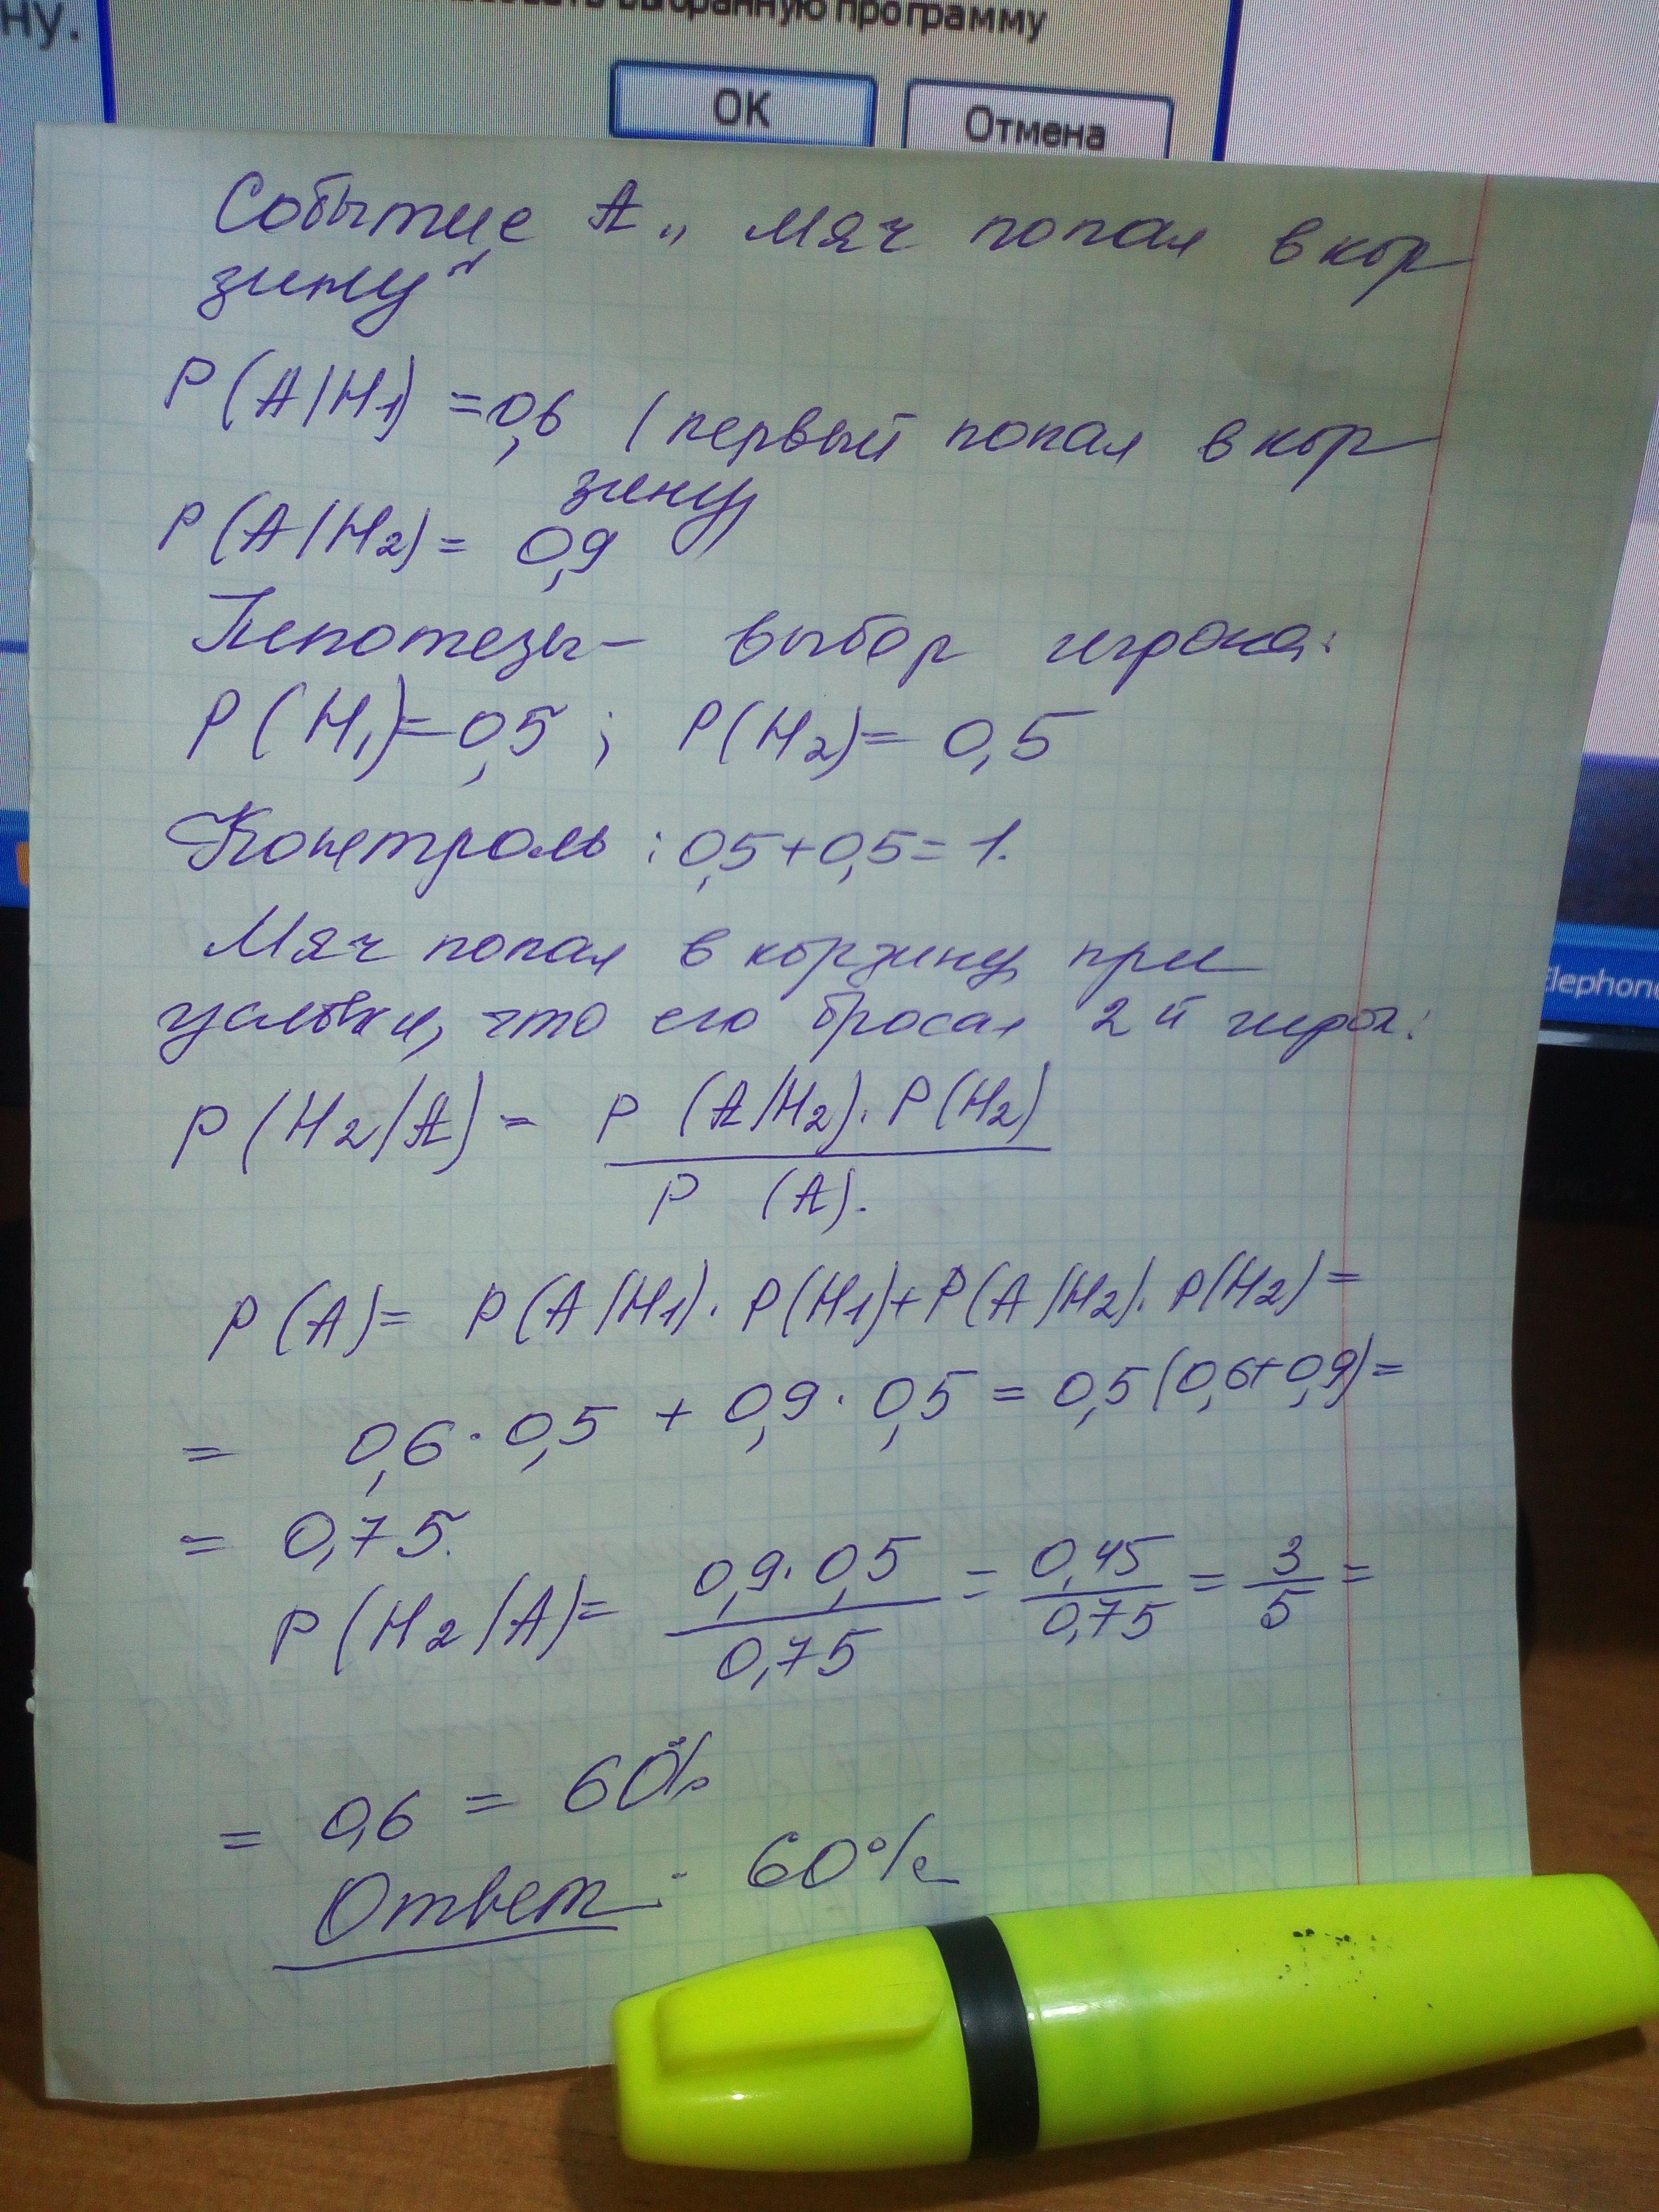 ну.
выбранную программу
OK
Отмена
Событие A „ мяч попал в кор
зину“
P(A/H1) = 0,6 (первый попал в кор
зину)
P(A/H2) = 0,9
Гипотезы – выбор игрока:
P(H1) = 0,5 ; P(H2) = 0,5
Контроль : 0,5+0,5 = 1.
Мяч попал в корзину при
условии, что его бросал 2й игрок:
P(H2/A) = P (A/H2) · P(H2)
P (A).
P(A) = P(A/H1) · P(H1) + P(A/H2) · P(H2) =
= 0,6 · 0,5 + 0,9 · 0,5 = 0,5(0,6+0,9) =
= 0,75.
P(H2/A) = 0,9 · 0,5 / 0,75 = 0,45 / 0,75 = 3/5 =
= 0,6 = 60%
Ответ : 60%
Elephone